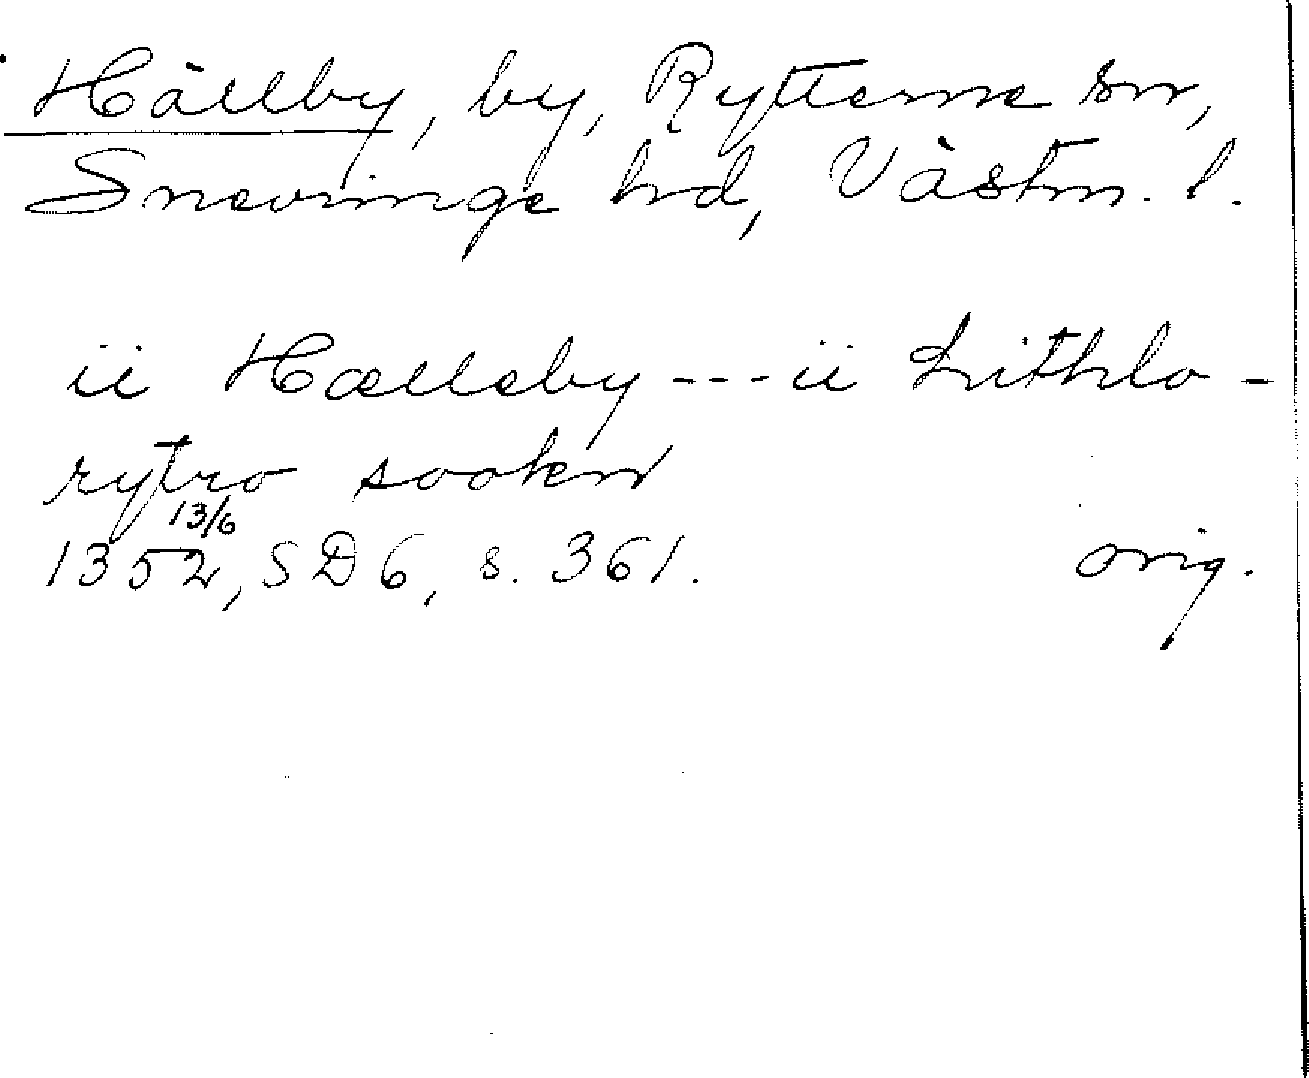 Hällby, by, Rytterne sn,
Snevringe hd, Västm. l.
ii Hælleby --- ii Lithlo-
rytro sookn
13/6
1352, SD6, s. 361. orig.